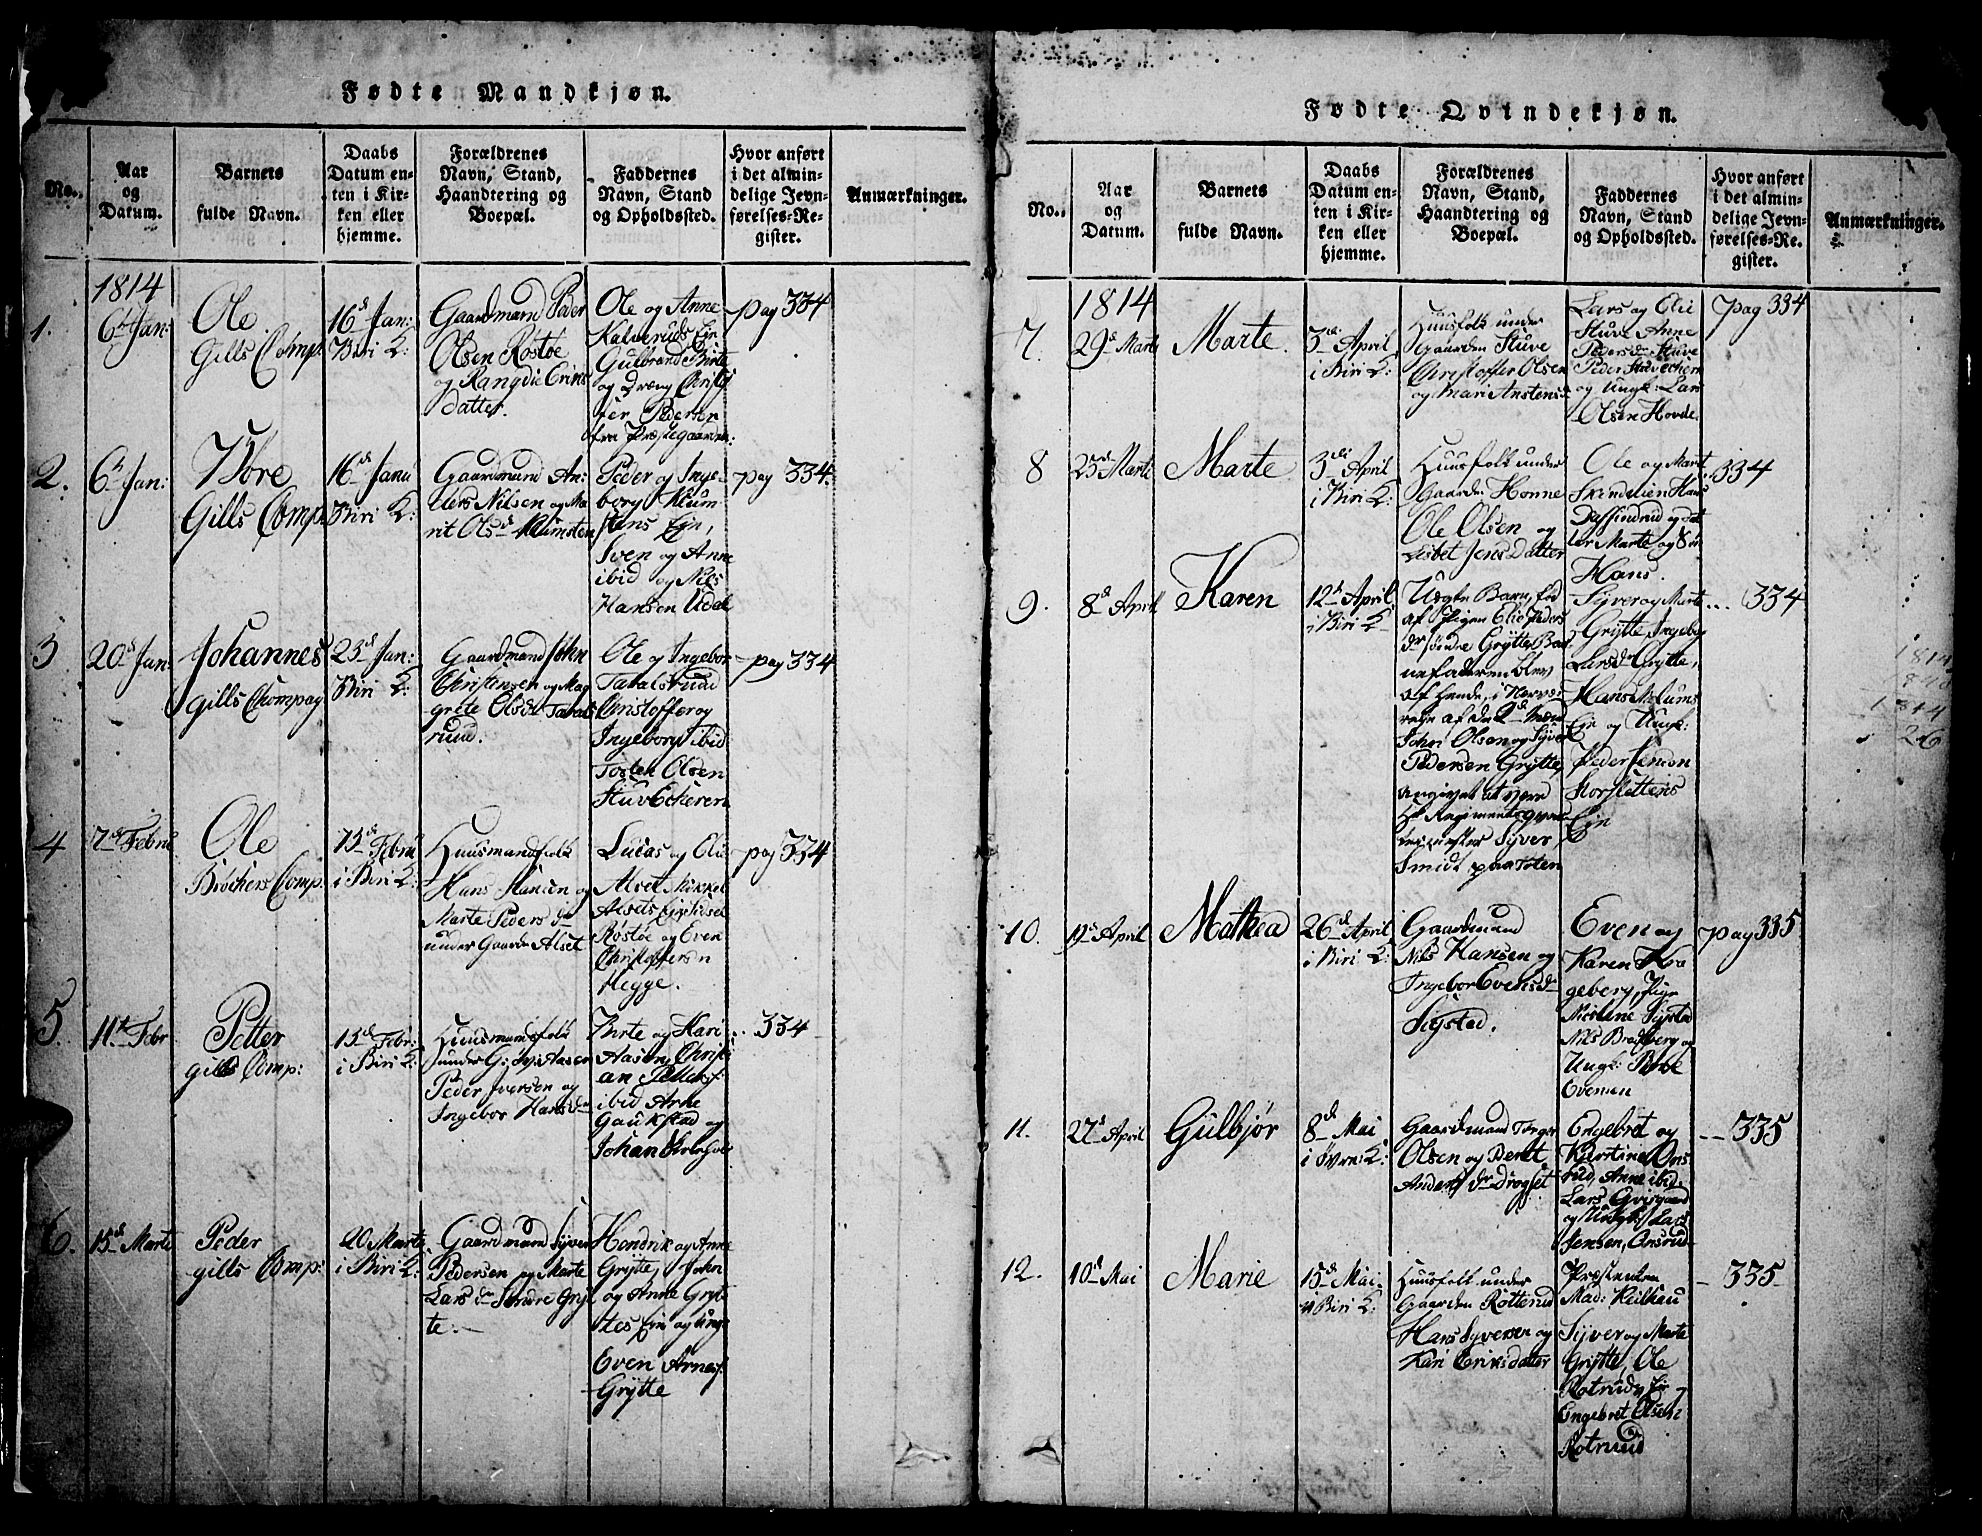 Fødte Mandkjøn.
No.
Aar
og
Datum.
Barnets
fulde Navn.
Daabs
Datum en-
ten i Kir-
ken eller
hjemme.
Forældrenes
Navn, Stand,
Haandtering og
Boepæl.
Faddernes
Navn, Stand
og Opholdssted.
Hvor anført
i det almin-
delige Jevn-
førelses-Re-
gister.
Anmærkninger.
1814
1.
6te Jan:
Ole
Gills Comp:
16de Jan:
Biri K:
Gaardmand Peder
Olsen Rostøe
og Rangdie Erics
datter.
Ole og Anne
Kalveruds Ein
Gulbrand Birte
og Dreng Christof
fer Pedersen
fra Præstegaarden:
pag 334
2.
6te Jan:
Børe
Gills Comp.
16de Janu
Biri K:
Gaardmand An-
ders Nilsen og Ma
rit Olsd. Klumsten
Peder og Inge-
borg Klum-
stens Ejn,
Sven og Anne
ibid og Nils
Hansen Udal
pag 334.
3
20de Jan:
Johannes
Gills Compag
23de Jan:
Biri K:
Gaardmand John
Christensen og Mag
grete Olsdr Tatals
rud.
Ole og Ingebor
Tatalsruud
Christoffer og
Ingeborg ibid
Tosten Olsen
StuvEcheren
pag 334
4
7de Febru
Ole
Brøchers Comp.
13de Febru
i Biri K:
Huusmandsfolk
Hans Hansen og
Marte Peders dr
under Gaarden Alset
Lucas og Elie
Alset Mikkel
Alsets
Rostøe og Even
Christoffersen
Hegge.
pag 334
5.
11te Febr
Petter
gills Comp:
13de Febr:
i Biri K:
Huusmandsfolk
under Aasen
Peder Iversen og
Ingebor Hansdr
Birte og Kari
Aasen, Christi
an Petters:
ibid Arne
Gaukstad og
Johan
.. 334
6.
15de Marti
Peder
gills Comp:
20 Martz
i Biri K:
Gaardmand Syver
Pedersen og Marte
Lars dr Søndre Gryt
te.
Hendrik og Anne
Grytte, John
og Anne Gryt
tes Ejn og unge
Even Arnes:
Grytte
Fødte Qvindekjøn.
No.
Aar
og
Datum.
Barnets
fulde Navn.
Daabs
Datum en-
ten i Kir-
ken eller
hjemme.
Forældrenes
Navn, Stand,
Haandtering og
Boepæl.
Faddernes
Navn, Stand
og Opholdssted.
Hvor anført
i det almin-
delige Jevn-
førelses-Re-
gister.
Anmærkninger.
1814
7.
29de Marti
Marte
3de April
i Biri K:
Huusfolk under
Gaarden Stuve
Christoffer Olsen
og Mari Anstensd
Lars og Elie
Stuve Anne
Pedersdr Stuve
Peder Stuvechern
og Ungk: Lars
Olsen Hovde
pag 334
8
23de Marti
Marte
3de April
i Biri K:
Huusfolk under
Gaarden Honne
Ole Olsen og
Lisbet Jens Datter
Ole og Marit
Skindelien Hans
Dassindrud og dat
ter Marte og Søn
Hans.
..334
9.
8de April
Karen
12te April
i Biri K:
Uægte Barn, fød
af Pigen Elie Peders
dr søndre Grytte Bar
nefaderen blev
af hende, i Nærvæ-
relse af de 2de Mænd
John Olsen og Syver
Pedersen Grytte,
angivet at være
Regiments
Syver
Smidt paa Toten
Syver og Marte
Grytte, Ingeborg
Larsdr Grytte,
Hans Melums
Ejn og Ungk:
Peder Jenson
Storslettens
Ejn
... 334
1814
1814
26
10.
19de April
Mathea
26de April
i Biri K:
Gaardmand
Nils Hansen og
Ingebor Evensdr
Sigstad.
Even og
Karen Kra
geberg, Pige
Nicoline Sigstad
Nils Bratberg og
Ungk: Børe
Evensen
pag 335
11.
27de April
Gulbjør
8de Mai
i K:
Gaardmand Torger
Olsen og Beret
Anders dr Drogset
Engebret og
Kierstine Ons
rud, Anne ibid
Lars
og Ungk: Lars
Jensen, Onsrud
-- 335
12.
10de Mai
Marie
15de Mai
i Biri K:
Huusfolk under
Gaarden Rotterud
Hans Syversen og
Kari Eriksdatter
Præstenken
Mad: Keilhau
Syver og Marte
Grytte, Ole
Rotruds Ejn
Engebret Olsen
Rotruud
- 335